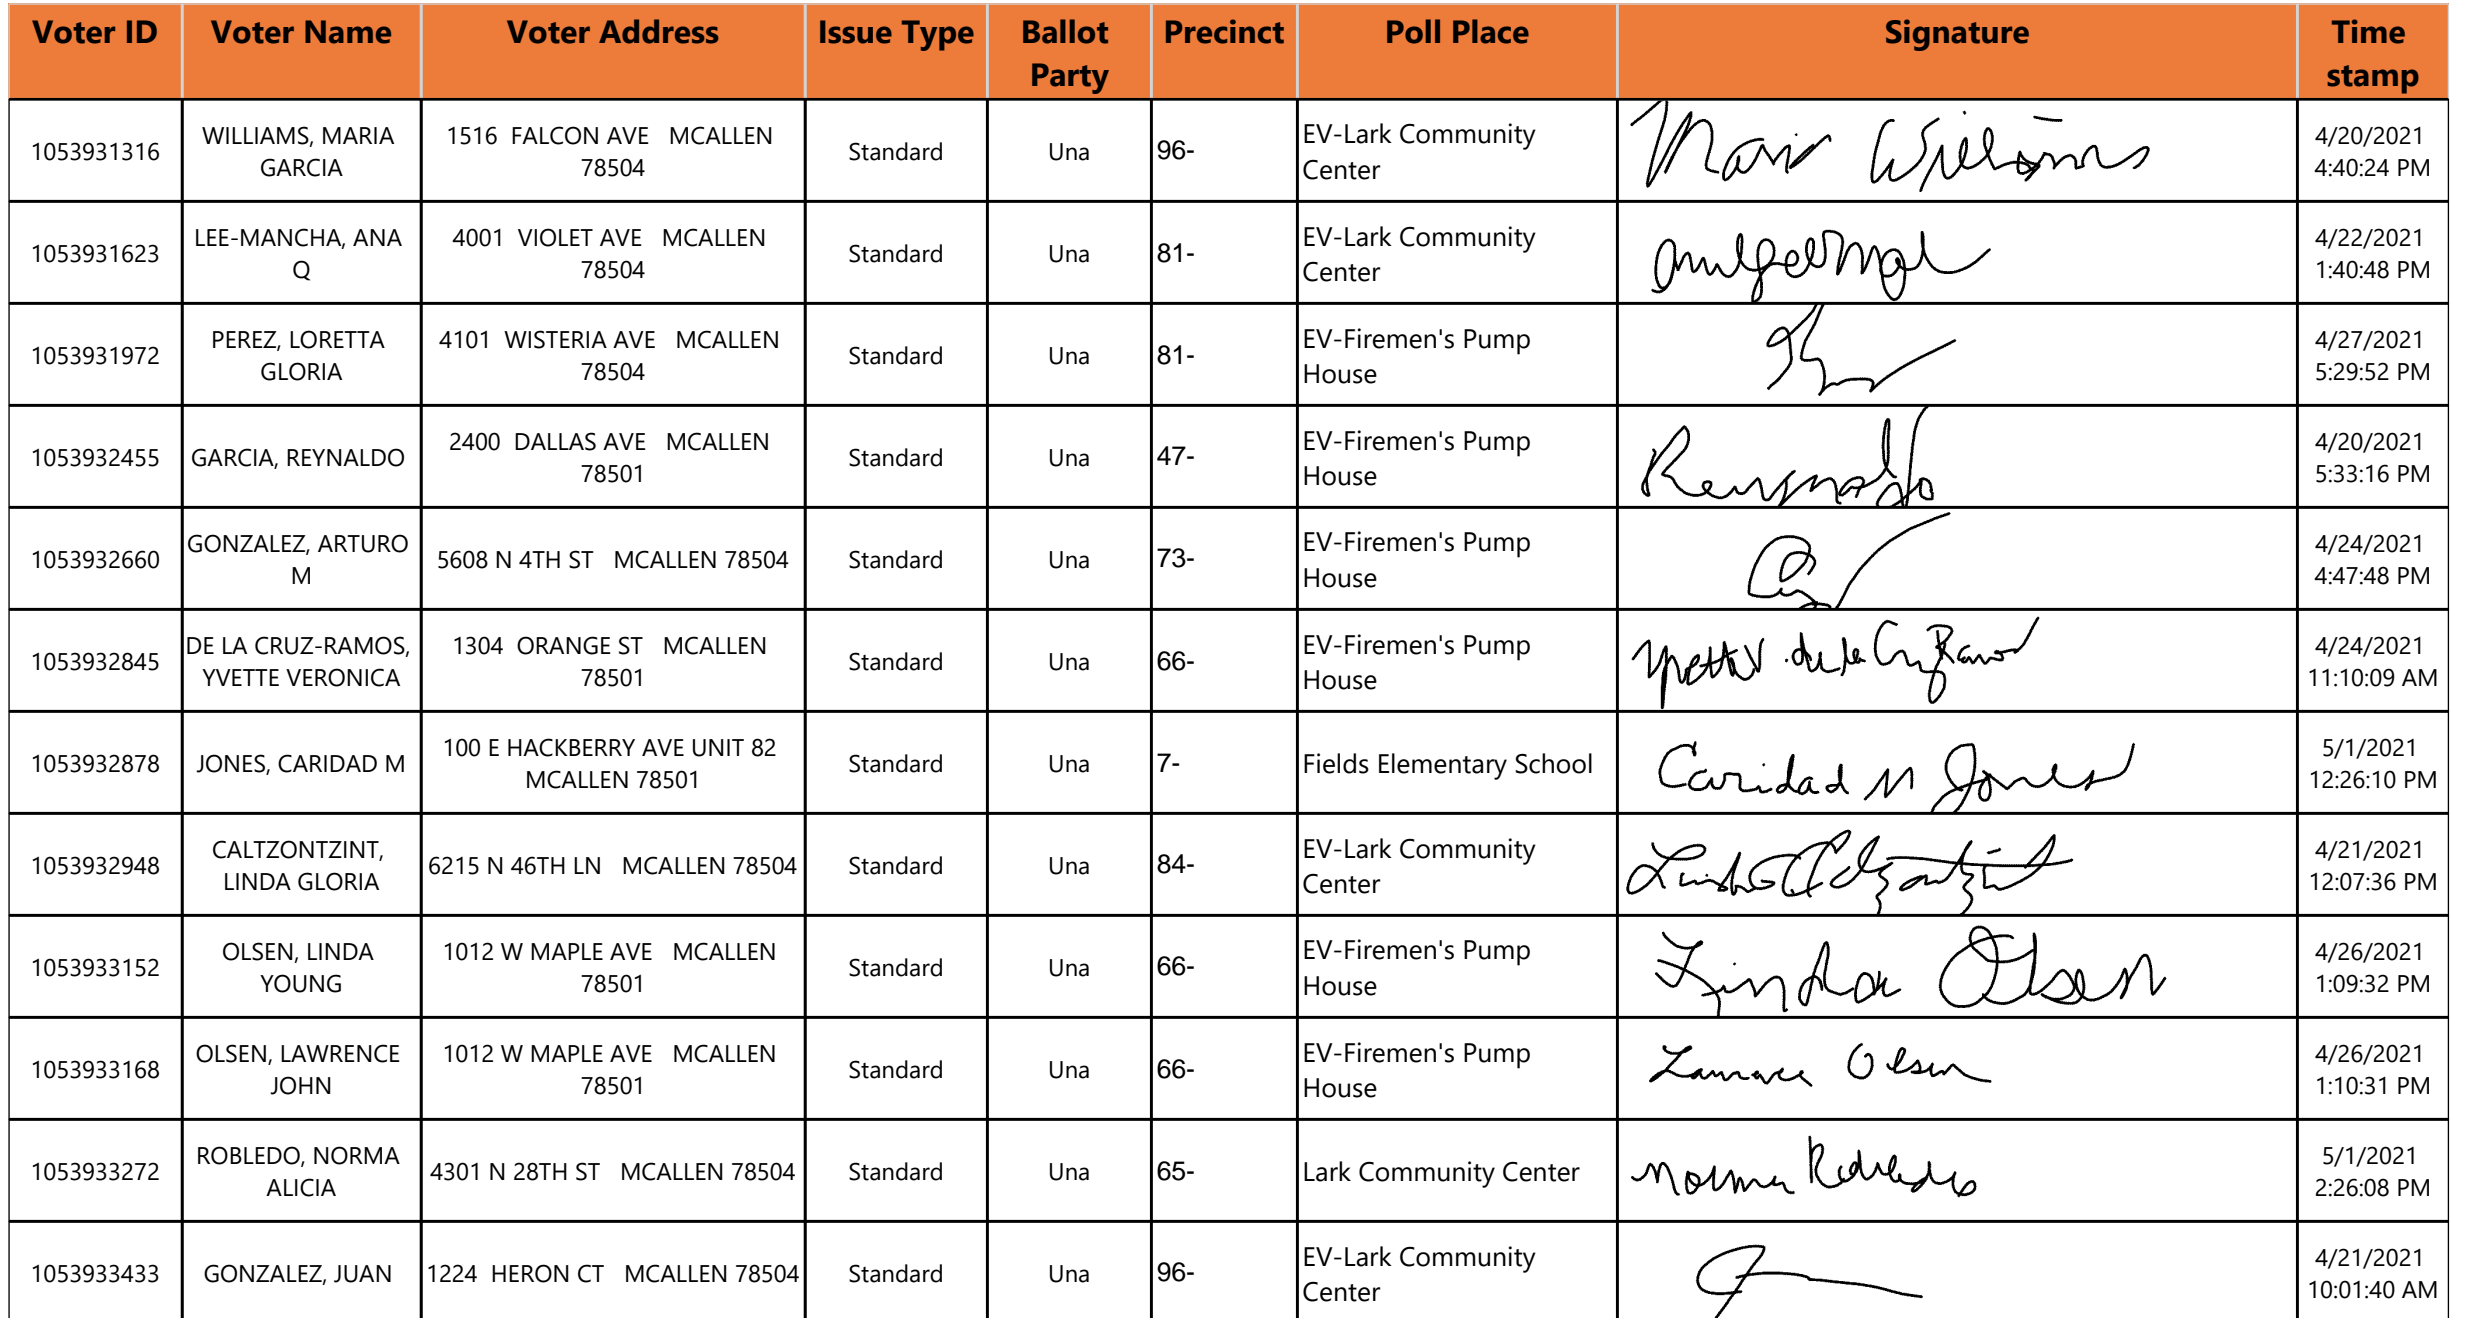 Voter ID Voter Name Voter Address Issue Type Ballot Party Precinct Poll Place Signature Time stamp
1053931316 WILLIAMS, MARIA GARCIA 1516 FALCON AVE MCALLEN 78504 Standard Una 96- EV-Lark Community Center Maria Williams 4/20/2021 4:40:24 PM
1053931623 LEE-MANCHA, ANA Q 4001 VIOLET AVE MCALLEN 78504 Standard Una 81- EV-Lark Community Center 4/22/2021 1:40:48 PM
1053931972 PEREZ, LORETTA GLORIA 4101 WISTERIA AVE MCALLEN 78504 Standard Una 81- EV-Firemen's Pump House 4/27/2021 5:29:52 PM
1053932455 GARCIA, REYNALDO 2400 DALLAS AVE MCALLEN 78501 Standard Una 47- EV-Firemen's Pump House Reynaldo 4/20/2021 5:33:16 PM
1053932660 GONZALEZ, ARTURO M 5608 N 4TH ST MCALLEN 78504 Standard Una 73- EV-Firemen's Pump House 4/24/2021 4:47:48 PM
1053932845 DE LA CRUZ-RAMOS, YVETTE VERONICA 1304 ORANGE ST MCALLEN 78501 Standard Una 66- EV-Firemen's Pump House Yvette V. de la Cruz Ramos 4/24/2021 11:10:09 AM
1053932878 JONES, CARIDAD M 100 E HACKBERRY AVE UNIT 82 MCALLEN 78501 Standard Una 7- Fields Elementary School Caridad M Jones 5/1/2021 12:26:10 PM
1053932948 CALTZONTZINT, LINDA GLORIA 6215 N 46TH LN MCALLEN 78504 Standard Una 84- EV-Lark Community Center Linda G Caltzontzint 4/21/2021 12:07:36 PM
1053933152 OLSEN, LINDA YOUNG 1012 W MAPLE AVE MCALLEN 78501 Standard Una 66- EV-Firemen's Pump House Linda Olsen 4/26/2021 1:09:32 PM
1053933168 OLSEN, LAWRENCE JOHN 1012 W MAPLE AVE MCALLEN 78501 Standard Una 66- EV-Firemen's Pump House Lawrence Olsen 4/26/2021 1:10:31 PM
1053933272 ROBLEDO, NORMA ALICIA 4301 N 28TH ST MCALLEN 78504 Standard Una 65- Lark Community Center Norma Robledo 5/1/2021 2:26:08 PM
1053933433 GONZALEZ, JUAN 1224 HERON CT MCALLEN 78504 Standard Una 96- EV-Lark Community Center 4/21/2021 10:01:40 AM